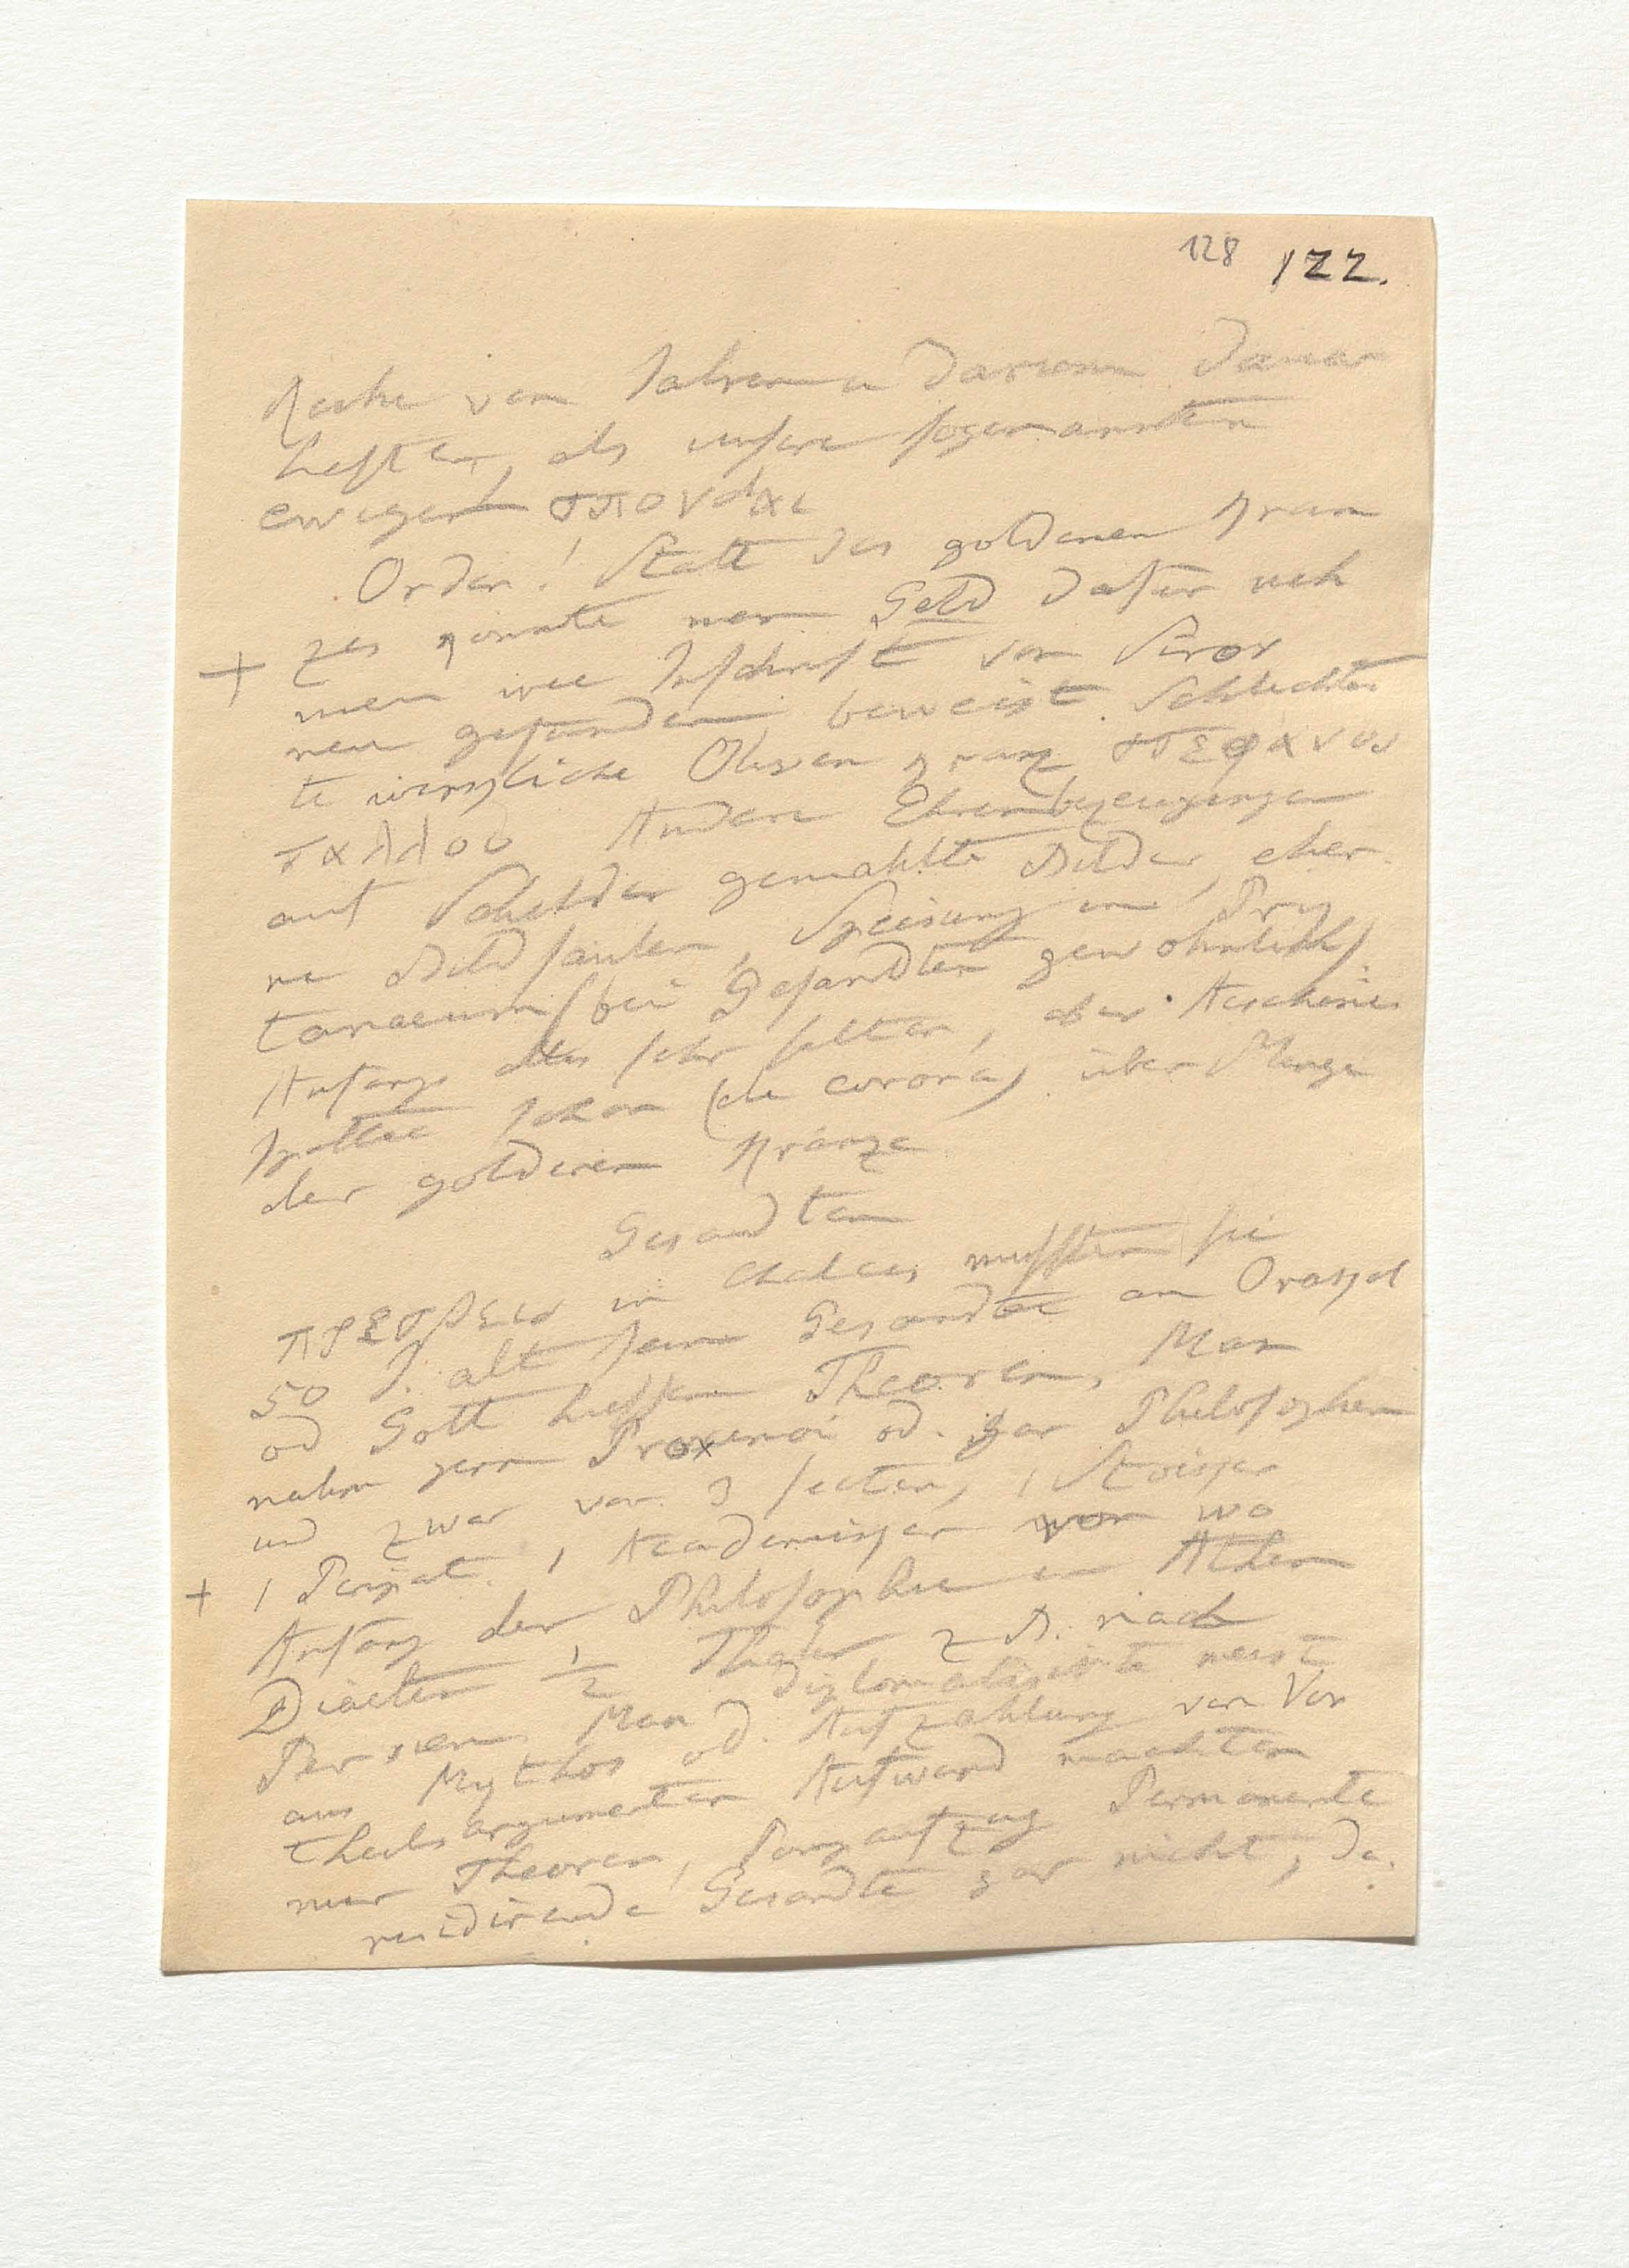 128 122.
Reihe von Jahren u darum dauer
hafter, als unsere sogenannten
ewigen σπονδαι
Orden! Statt des goldenen Kran
zes konnte man Geld dafür neh
+ men wie Inschrift von
neu gefunden beweist. Schlechtes
te wirkliche Oliven kranz στεφανος
θαλλου Andere Ehrenbezeugungen
auf Schilder gemahlte Bilder, eher
ne Bildsäulen, Speisung im Pry
taneum (bei Gesandten gewöhnlich)
Anfangs alles sehr selten, aber Aeschines
spottet schon (de corona) über Menge
der goldenen Kränze
Gesandten
πρεσβεις in Chalcis mussten sie
50 J. alt sein Gesandte an Orakel
od Gott hiessen Theoren, Man
nahm gern Proxenoi od. gar Philosophen
und zwar von 3 secten, 1 Stoiker
+ 1 Peripat. 1 Academiker von wo
Anfang der Philosophie in Athen
Diäten ½ Thaler z B. nach
Persien, Man diplomatisirte meist
aus Mythos od. Aufzählung von Vor
theilsargumenten Aufwand machten
nur Theoren, Pompaufzug Permanente
residirende Gesandte gar nicht, da